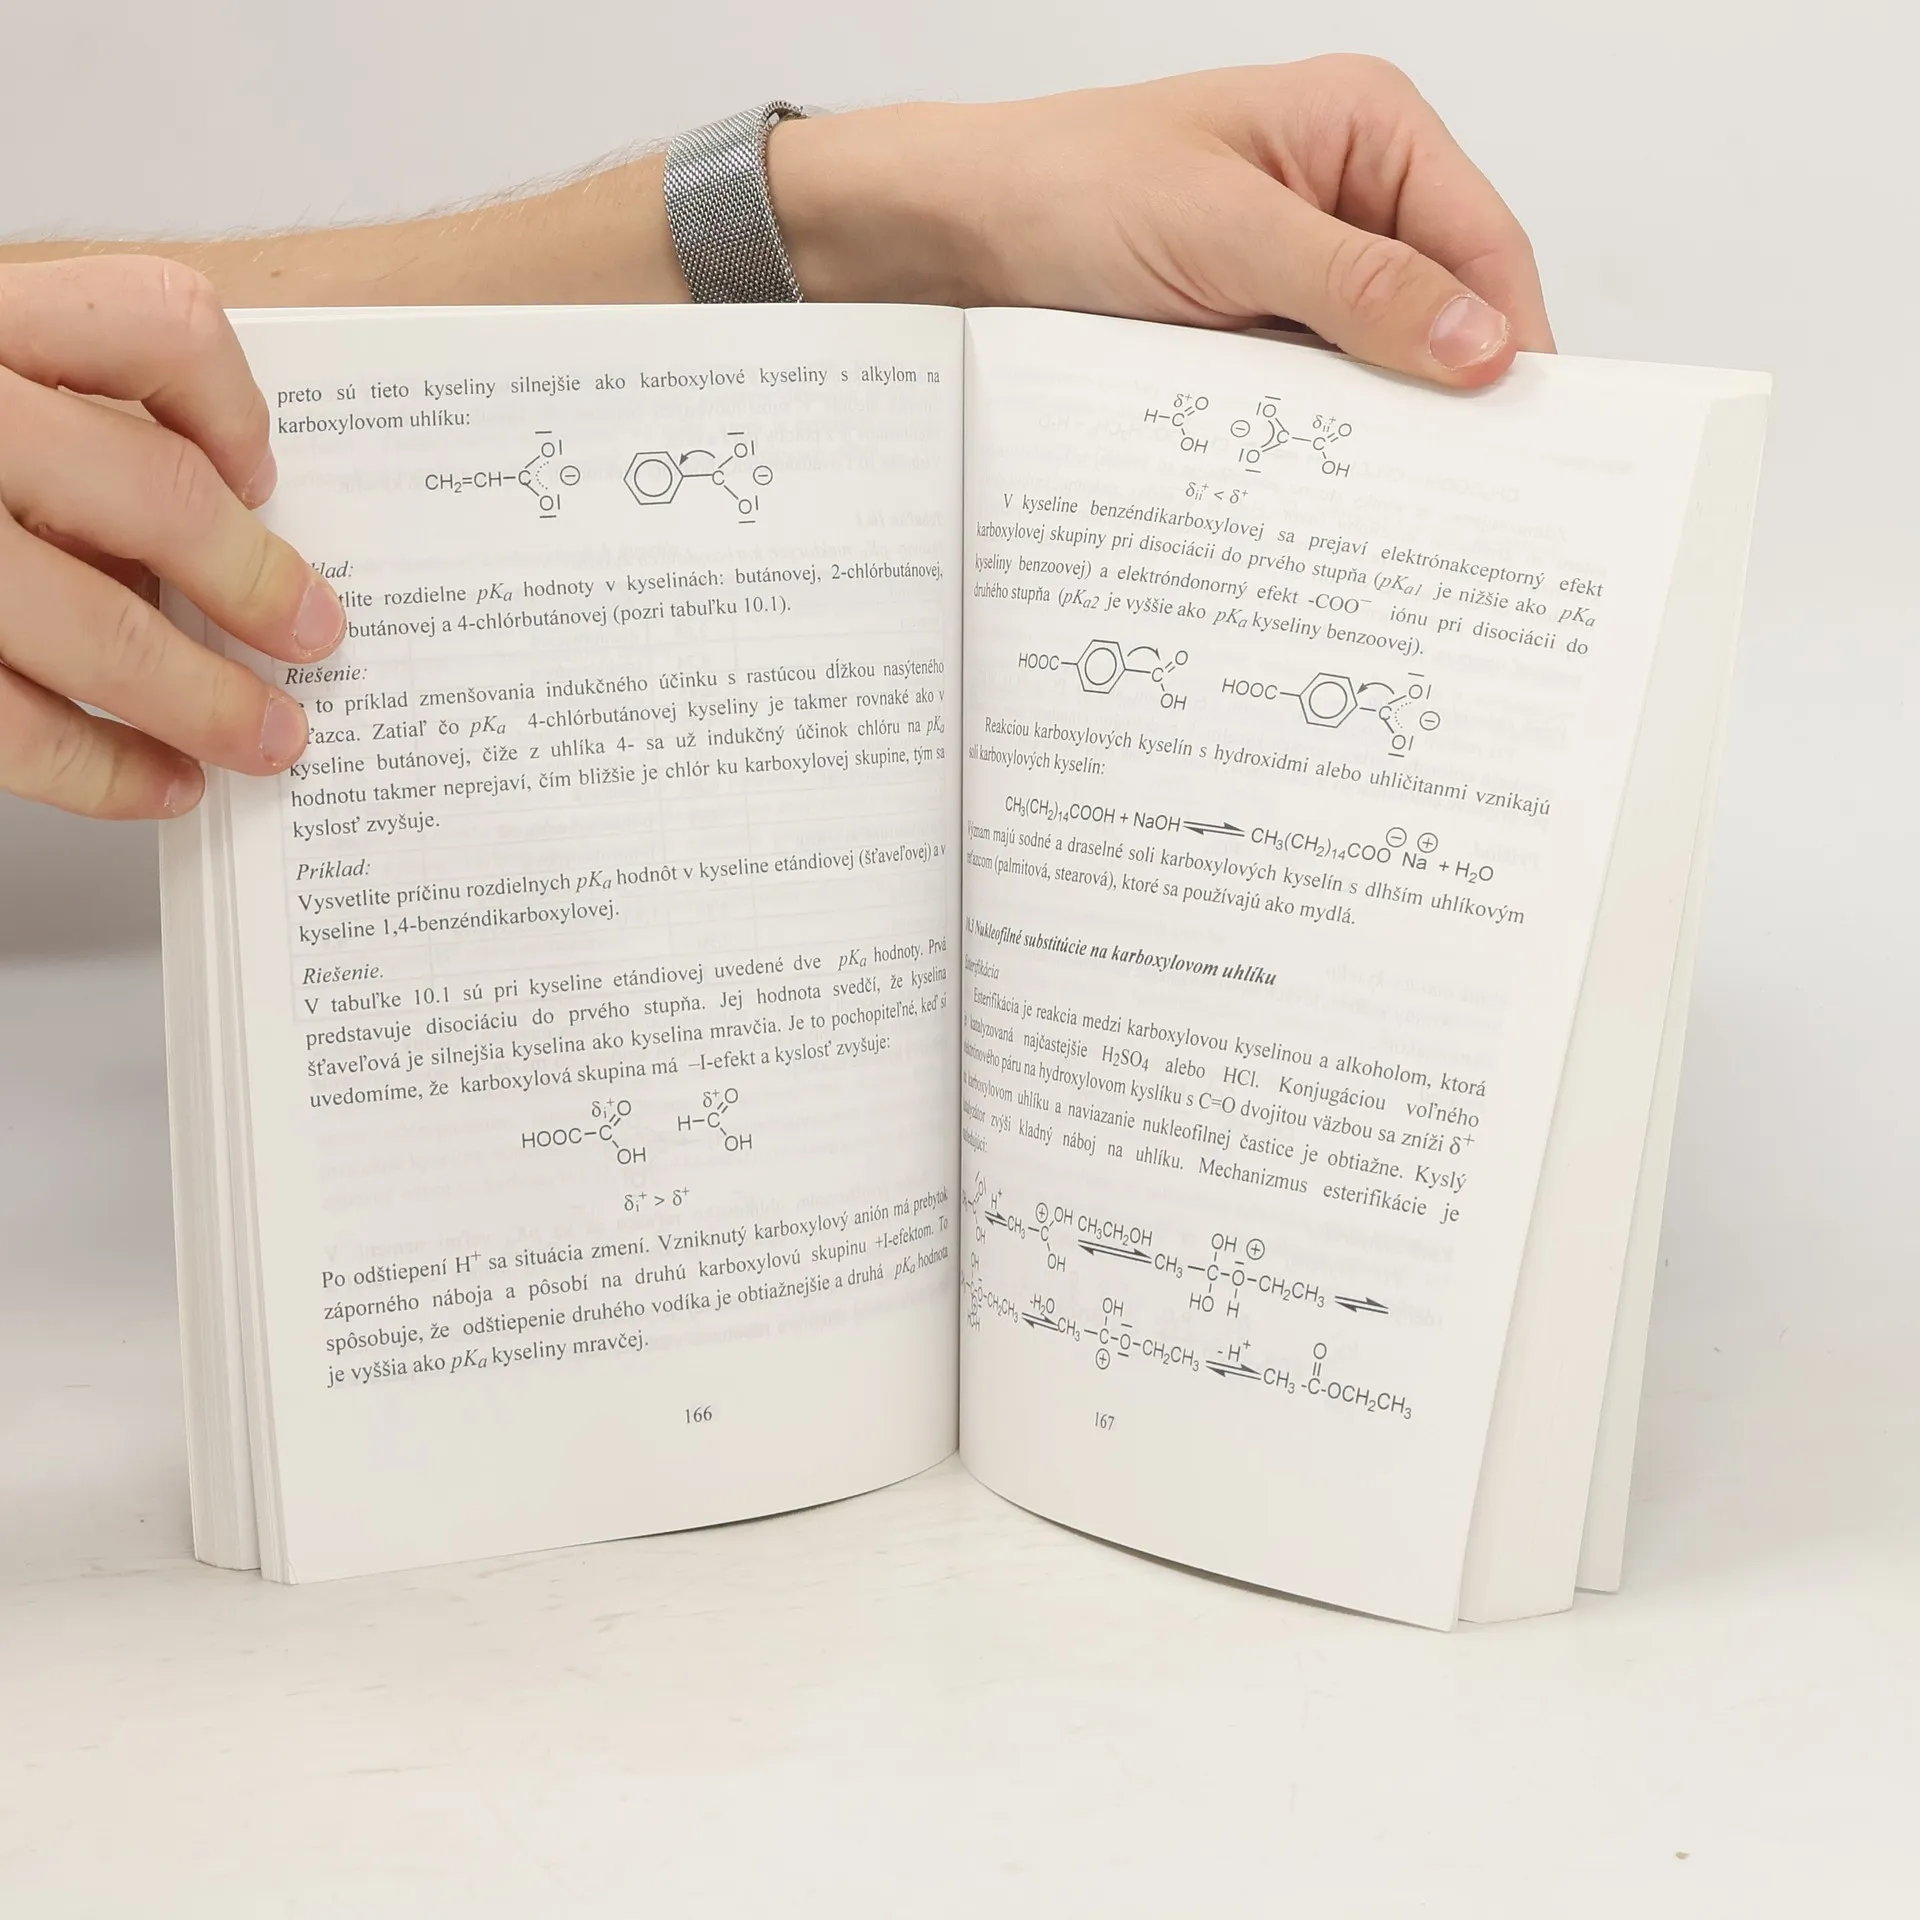 preto sú tieto kyseliny silnejšie ako karboxylové kyseliny s alkylom na
karboxylovom uhlíku:
CH₂=CH–C OI OI ⊖ C OI OI ⊖
klad:
tlite rozdielne pKₐ hodnoty v kyselinách: butánovej, 2-chlórbutánovej,
butánovej a 4-chlórbutánovej (pozri tabuľku 10.1).
Riešenie:
to príklad zmenšovania indukčného účinku s rastúcou dĺžkou nasýteného
ťazca. Zatiaľ čo pKₐ 4-chlórbutánovej kyseliny je takmer rovnaké ako v
kyseline butánovej, čiže z uhlíka 4- sa už indukčný účinok chlóru na pKₐ
hodnotu takmer neprejaví, čím bližšie je chlór ku karboxylovej skupine, tým sa
kyslosť zvyšuje.
Príklad:
Vysvetlite príčinu rozdielnych pKₐ hodnôt v kyseline etándiovej (šťaveľovej) a v
kyseline 1,4-benzéndikarboxylovej.
Riešenie.
V tabuľke 10.1 sú pri kyseline etándiovej uvedené dve pKₐ hodnoty. Prvá
predstavuje disociáciu do prvého stupňa. Jej hodnota svedčí, že kyselina
šťaveľová je silnejšia kyselina ako kyselina mravčia. Je to pochopiteľné, keď si
uvedomíme, že karboxylová skupina má –I-efekt a kyslosť zvyšuje:
δᵢ⁺ O δ⁺ O
HOOC–C H–C
OH OH
δᵢ⁺ > δ⁺
Po odštiepení H⁺ sa situácia zmení. Vzniknutý karboxylový anión má prebytok
záporného náboja a pôsobí na druhú karboxylovú skupinu +I-efektom. To
spôsobuje, že odštiepenie druhého vodíka je obtiažnejšie a druhá pKₐ hodnota
je vyššia ako pKₐ kyseliny mravčej.
166
δ⁺ O IO δᵢᵢ⁺ O
H–C ⊖ C–C
OH IO OH
δᵢᵢ⁺ < δ⁺
V kyseline benzéndikarboxylovej sa prejaví elektrónakceptorný efekt
karboxylovej skupiny pri disociácii do prvého stupňa (pKₐ₁ je nižšie ako pKₐ
kyseliny benzoovej) a elektróndonorný efekt -COO⁻ iónu pri disociácii do
druhého stupňa (pKₐ₂ je vyššie ako pKₐ kyseliny benzoovej).
HOOC C O OH HOOC C OI OI ⊖
Reakciou karboxylových kyselín s hydroxidmi alebo uhličitanmi vznikajú
soli karboxylových kyselín:
CH₃(CH₂)₁₄COOH + NaOH ⇌ CH₃(CH₂)₁₄COO⊖ Na⊕ + H₂O
Význam majú sodné a draselné soli karboxylových kyselín s dlhším uhlíkovým
reťazcom (palmitová, stearová), ktoré sa používajú ako mydlá.
Nukleofilné substitúcie na karboxylovom uhlíku
Esterifikácia
Esterifikácia je reakcia medzi karboxylovou kyselinou a alkoholom, ktorá
katalyzovaná najčastejšie H₂SO₄ alebo HCl. Konjugáciou voľného
elektrónového páru na hydroxylovom kyslíku s C=O dvojitou väzbou sa zníži δ⁺
karboxylovom uhlíku a naviazanie nukleofilnej častice je obtiažne. Kyslý
katalyzátor zvýši kladný náboj na uhlíku. Mechanizmus esterifikácie je
OH H⁺ ⇌ CH₃–C⊕ OH OH CH₃CH₂OH ⇌ CH₃–C–O–CH₂CH₃ OH ⊕ HO H ⇌
O–CH₂CH₃ -H₂O ⇌ CH₃–C–O–CH₂CH₃ OH ⊕ - H⁺ ⇌ CH₃-C-OCH₂CH₃ O
167